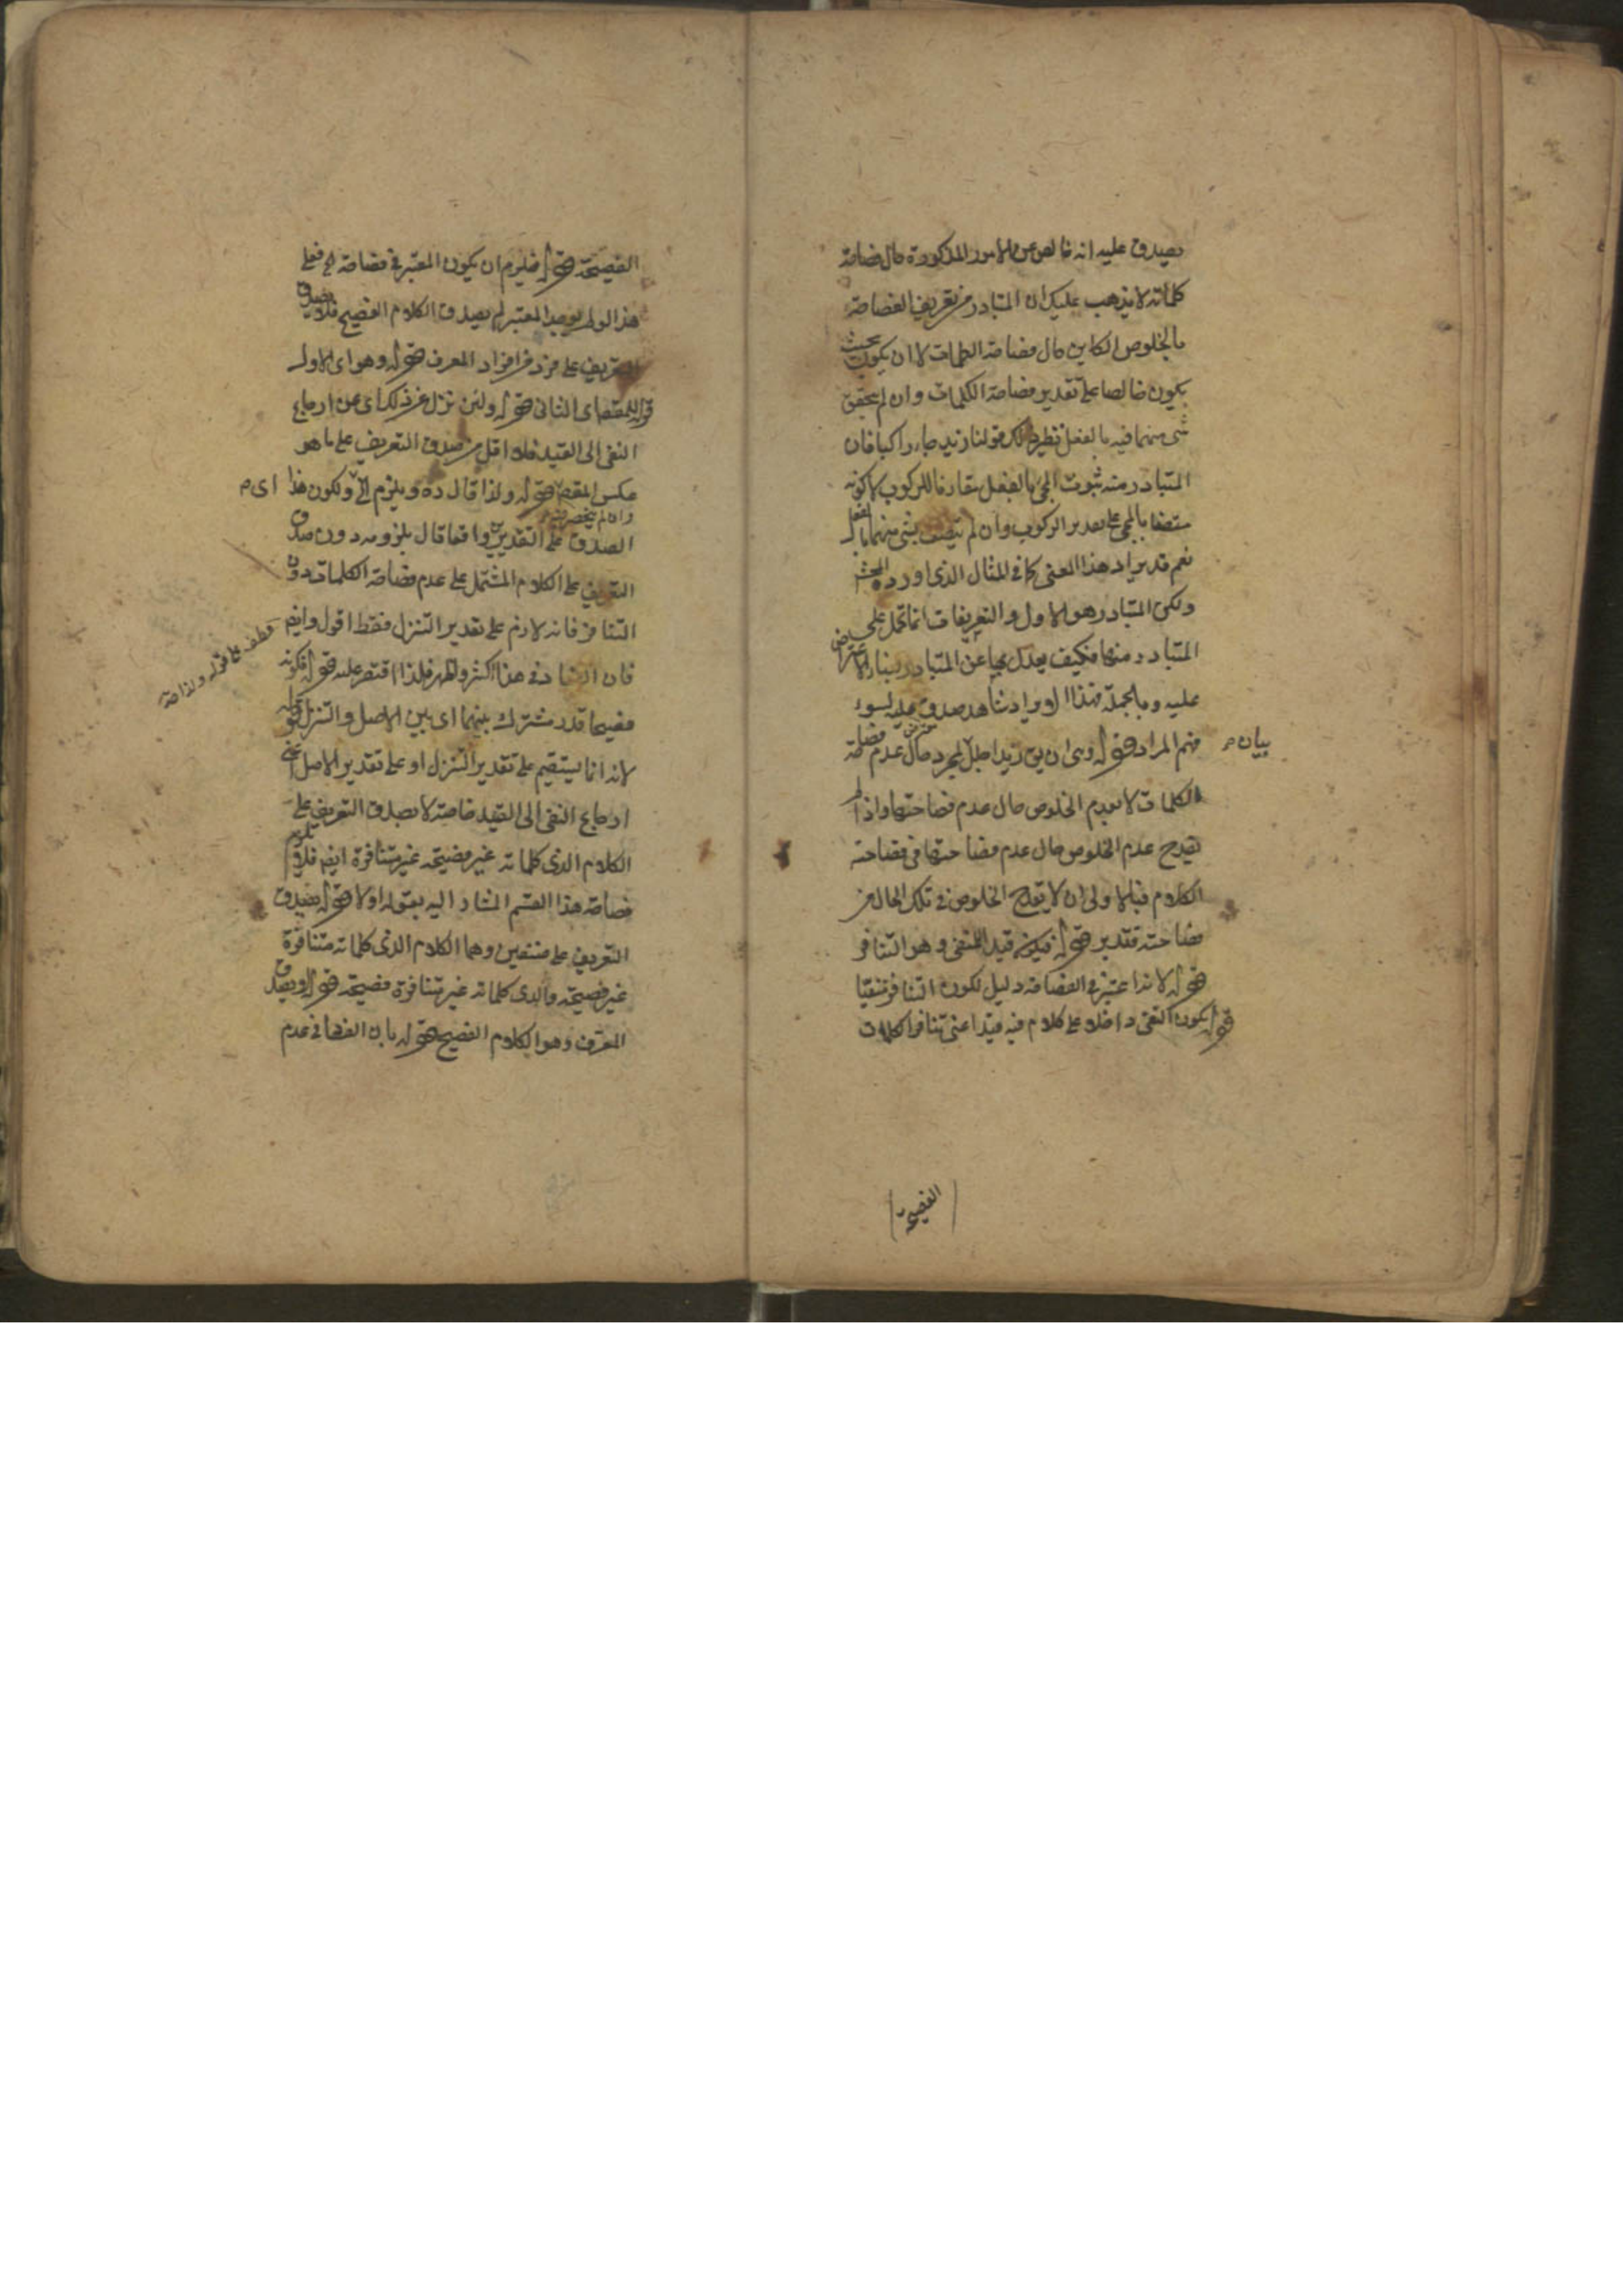 يصدق عليه انه خالص عن الامور المذكورة حال فصاحة
كلماته لا يذهب عليك ان المتبادر من تعريف الفصاحة
بالخلوص الكاين حال فصاحة الكلمات لا ان يكون بحيث
يكون خالصا على تقدير فصاحة الكلمات وان لم يتحقق
شئ منهما فيه بالفعل نظير ذلك قولنا زيد جاء راكبا فان
المتبادر منه ثبوت المجئ بالفعل مقارنا للركوب لا كونه
متصفا بالمجئ على تقدير الركوب وان لم يتصف بشئ منهما بالفعل
نعم قد يراد هذا المعنى كما في المثال الذي اورده المحشى
ولكن المتبادر هو الاول والتعريفات انما تحمل على
المتبادر منها فكيف يعدل بها عن المتبادر بناء الاعتراض
عليه وبالجملة فهذا الايراد شاهد صدق عليه لسوء
فهم المراد قوله وسى ان يق زيد اجلل لمجرد حال عدم فصاحة
بيان م
الكلمات لا بعدم الخلوص حال عدم فصاحتها واذا لم
يقدح عدم الخلوص حال عدم فصاحتها في فصاحة
الكلام فبالاولى ان لا يقدح الخلوص في تلك الحال من
فصاحته فتدبر قوله فيكون قيد اللمنفى وهو التنافر
قوله لانه اعتبر في الفصاحة دليل لكون التنافر منفيا
قوله يكون النفى داخلا على كلام فيه قيد اعنى تنافر الكلمات
الفصيحة
الفصيحة قوله فيلزم ان يكون المعتبر في فصاحة الخ فعلى
هذا لو لم يوجد المعتبر لم يصدق الكلام الفصيح فلا يصدق
التعريف على فرد من افراد المعرف قوله وهو اى الاول
قوله للمقصد اى الثانى قوله ولئن نزل عن ذلك اى عن ارجاع
النفى الى القيد فلا اقل من صدق التعريف على ما هو
عكس المقصد قوله ولذا قال ره ويلزم الخ ولكون هذا اى م
وان لم ينحصر فيه
الصدق على التقديرين واقعا قال يلزومه دون صدق
التعريف على الكلام المشتمل على عدم فصاحة الكلمات دون
التنافر فانه لازم على تقدير التنزل فقط اقول وايضا
فان الفساد في هذا اكثر واظهر فلذا اقتصر عليه قوله فكونه
عطف على قوله ولذا صة
فصيحا قدر مشترك بينهما اى بين الاصل والتنزل قوله
لانه انما يستقيم على تقدير التنزل او على تقدير الاصل اعنى
ارجاع النفى الى القيد خاصة لا يصدق التعريف على
الكلام الذى كلماته غير فصيحة غير متنافرة ايضا فلا يلزم
فصاحة هذا القسم المشار اليه بقوله اولا قوله يصدق
التعريف على صنفين وهما الكلام الذى كلماته متنافرة
غير فصيحة والذى كلماته غير متنافرة فصيحة قوله ويصدق
المعرف وهو الكلام الفصيح قوله بان الفصا في عدم